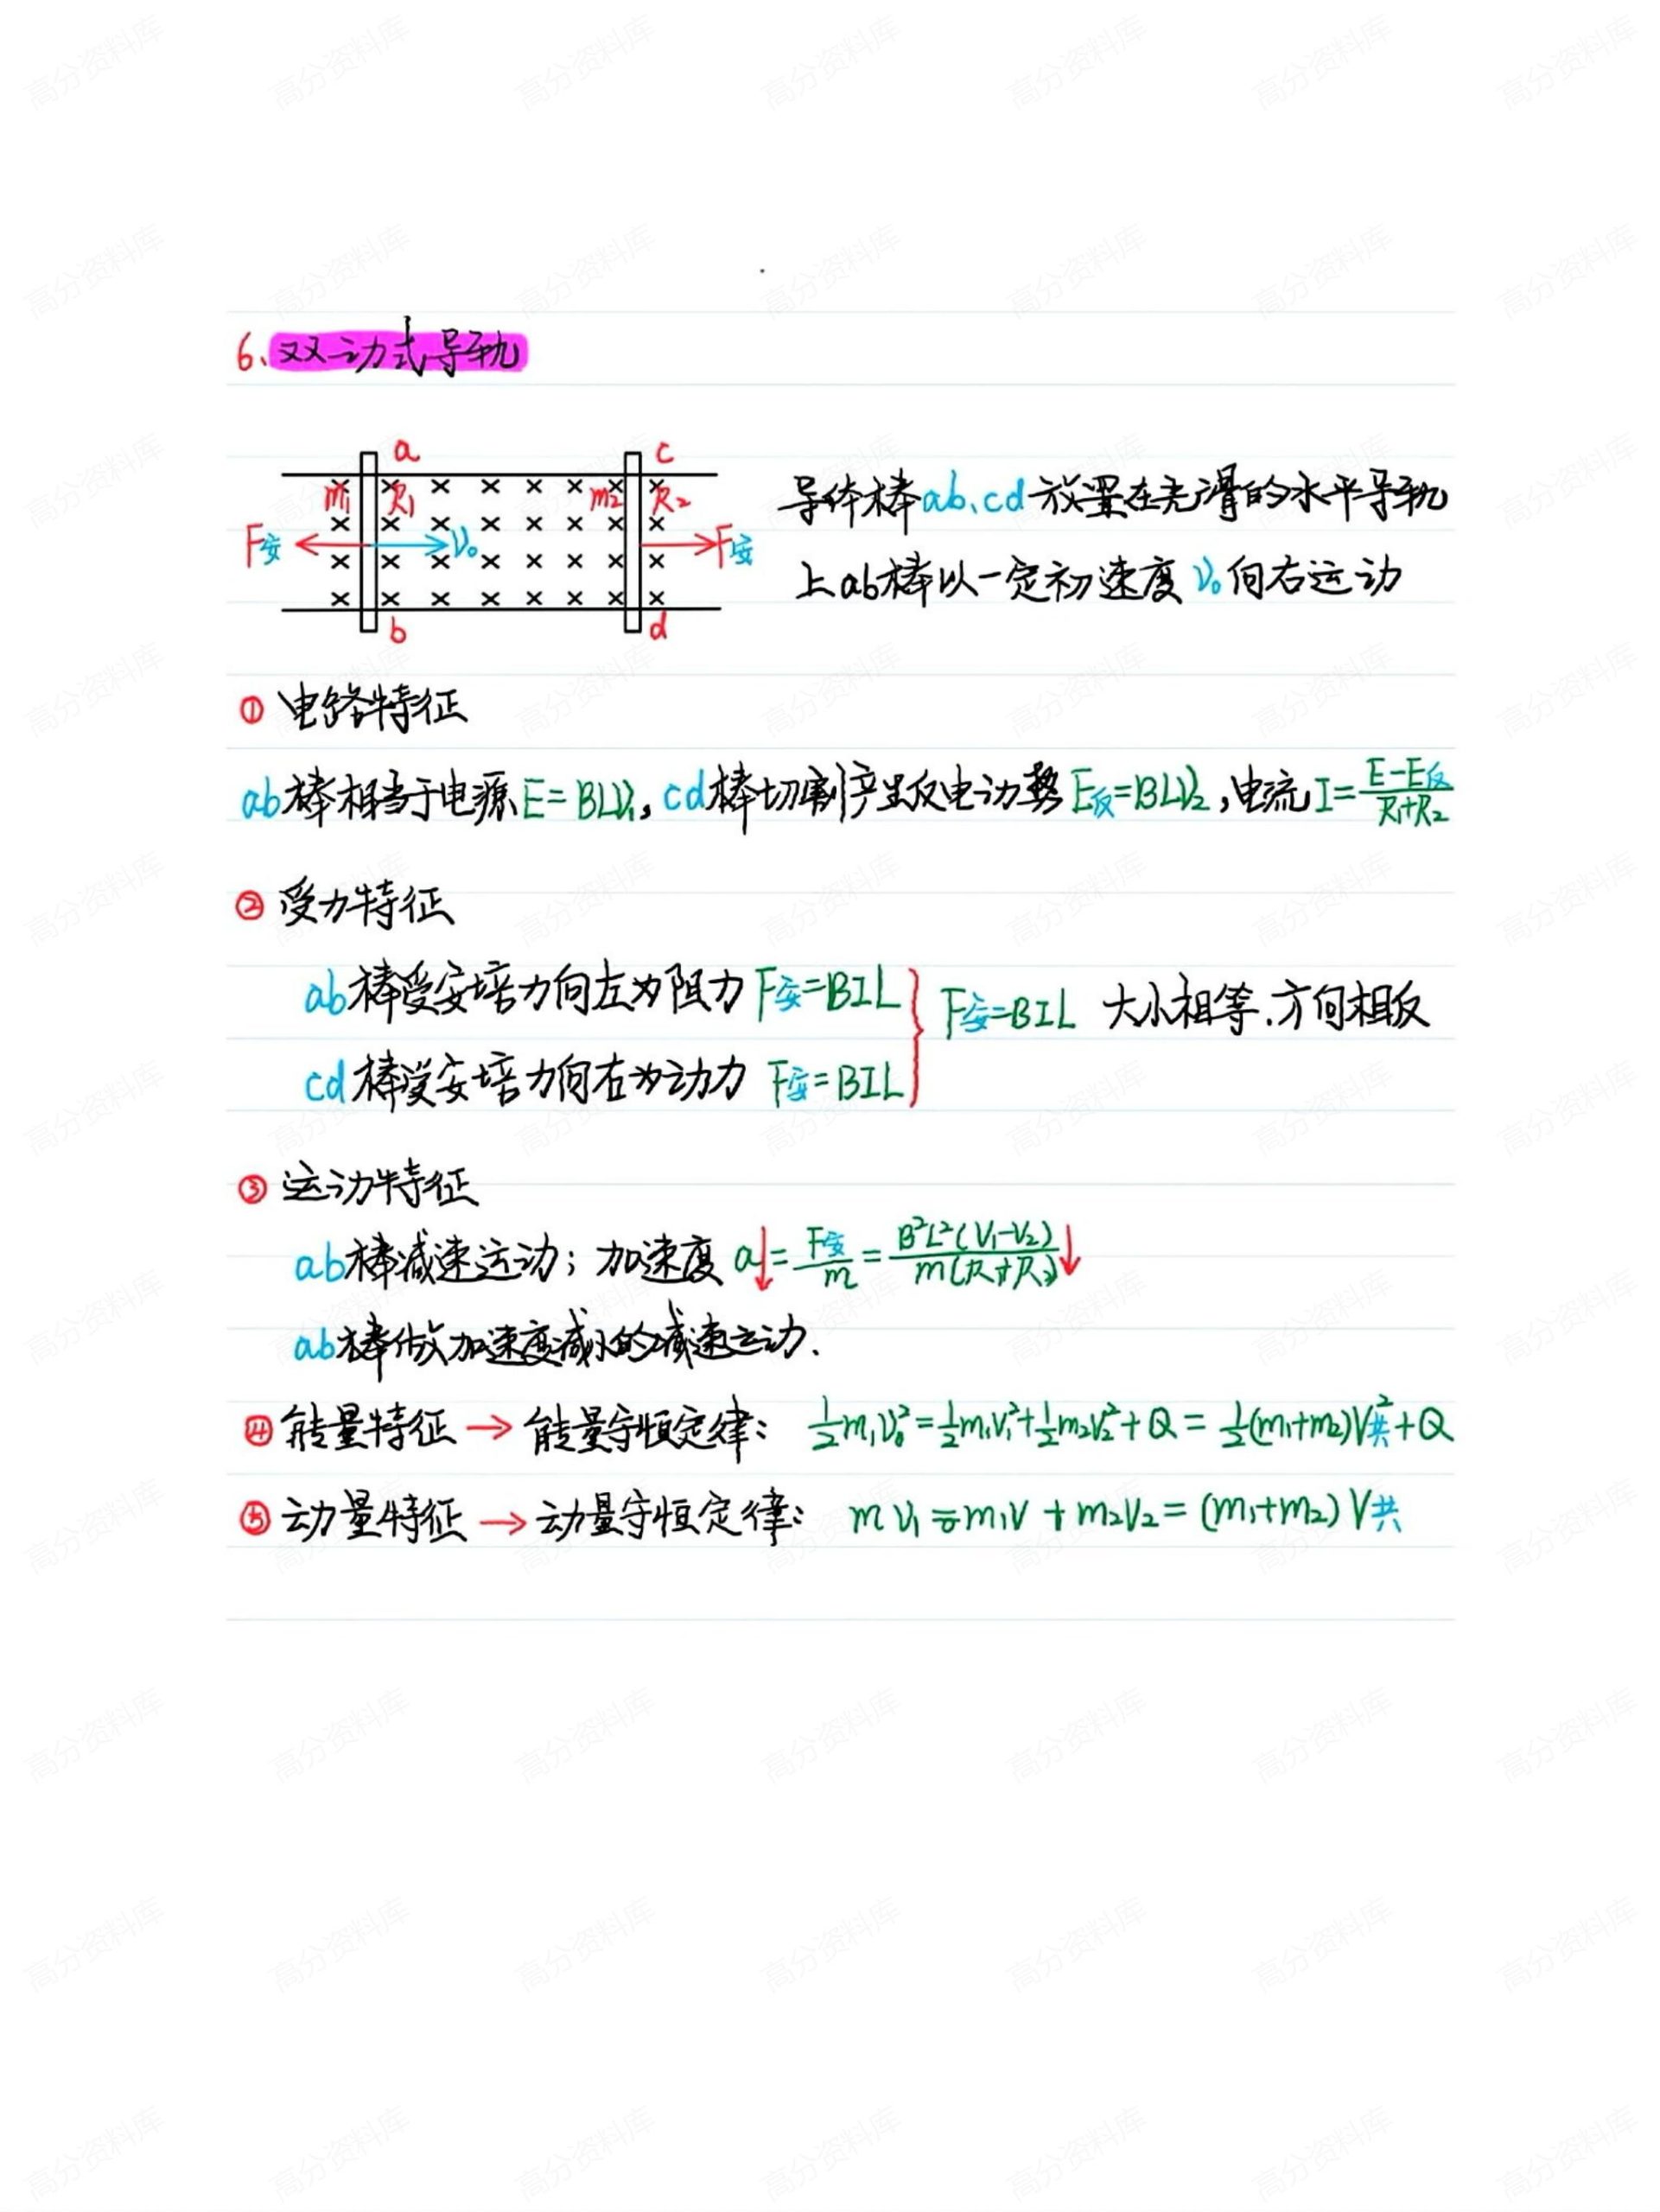 6、双动式导轨
a c
m₁ R₁ m₂ R₂
F安 V₀ F安
b d
导体棒ab、cd放置在光滑的水平导轨
上ab棒以一定初速度V₀向右运动
① 电路特征
ab棒相当于电源E=BLV₁,cd棒切割产生反电动势E反=BLV₂,电流I=(E-E反)/(R₁+R₂)
② 受力特征
ab棒受安培力向左为阻力 F安=BIL
F安=BIL 大小相等.方向相反
cd棒受安培力向右为动力 F安=BIL
③ 运动特征
ab棒减速运动;加速度 a↓=F安/m=B²L²(V₁-V₂)/m(R₁+R₂)↓
ab棒做加速度减小的减速运动.
④ 能量特征→能量守恒定律: ½m₁V₀²=½m₁V₁²+½m₂V₂²+Q=½(m₁+m₂)V共²+Q
⑤ 动量特征→动量守恒定律: mV₁=m₁V+m₂V₂=(m₁+m₂)V共
高分资料库